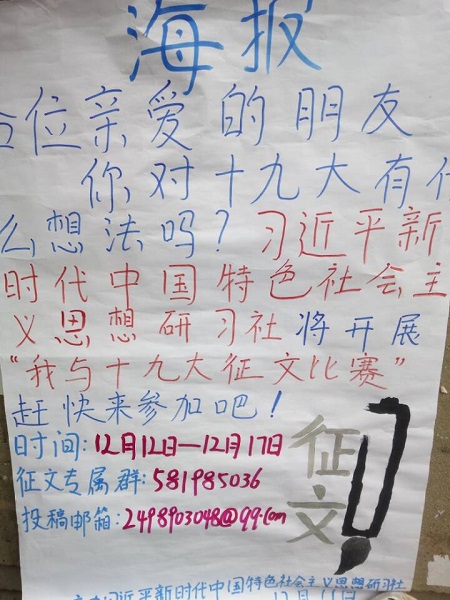 海报
各位亲爱的朋友
你对十九大有什
么想法吗？习近平新
时代中国特色社会主
义思想研习社将开展
“我与十九大征文比赛”
赶快来参加吧！
时间：12月12日—12月17日
征文专属群：581985036
投稿邮箱：2498903048@qq.com
征文
习近平新时代中国特色社会主义思想研习社
12月11日